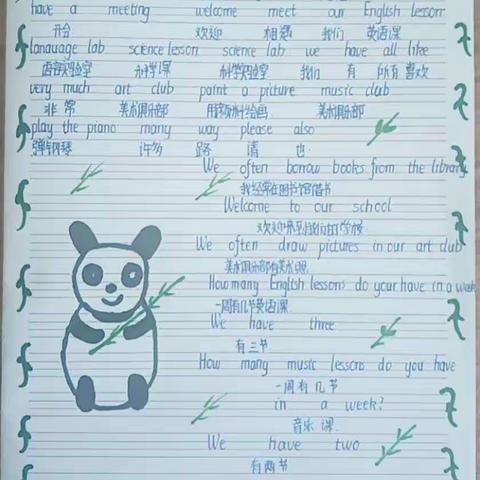 have a meeting welcome meet our English lesson
开会 欢迎 相遇 我们 英语课
language lab science lesson science lab we have all like
语言实验室 科学课 科学实验室 我们 有 所有 喜欢
very much art club paint a picture music club
非常 美术俱乐部 用颜料绘画 美术俱乐部
play the piano many way please also
弹钢琴 许多 路 请 也
We often borrow books from the library
我经常在图书馆借书
Welcome to our school
欢迎来到我们的学校
We often draw pictures in our art club
美术俱乐部
How many English lessons do your have in a week
一周有几节英语课
We have three
有三节
How many music lessons do you have
一周有几节
in a week?
音乐课
We have two
有两节